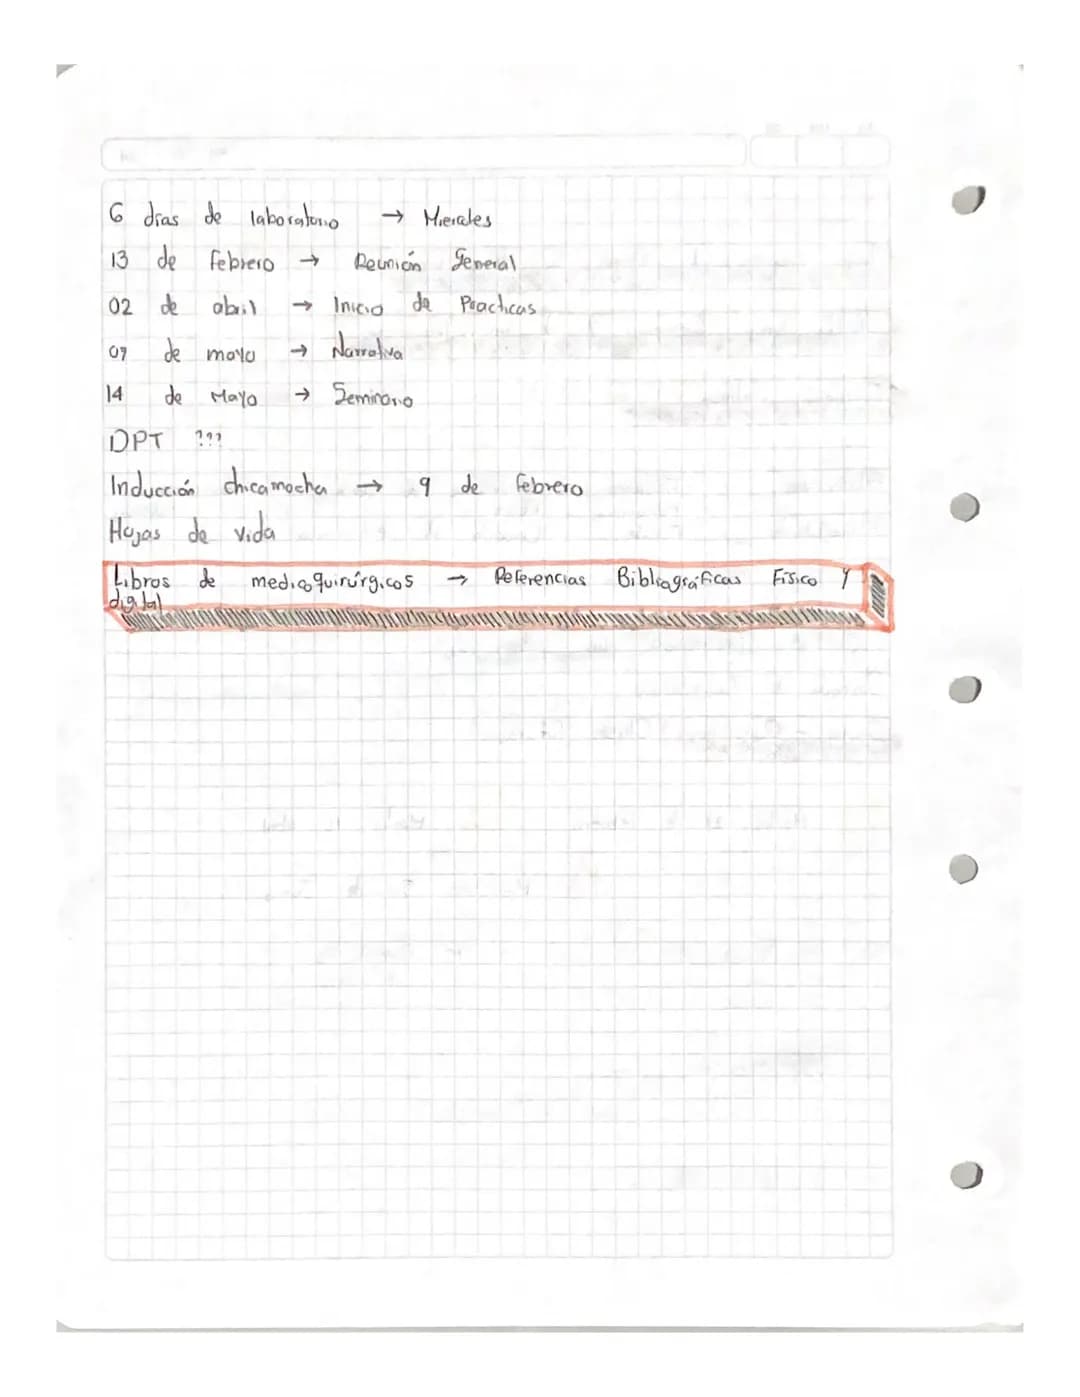 6 días de laboratorio → Mierales
13 de febrero → Reunión General
02 de abril → Inicio de Practicas
07 de mayo → Narrativa
14 de Mayo → Seminario
DPT ???
Inducción chicamocha → 9 de febrero
Hojas de vida
Libros de medicoquirúrgicos → Referencias Bibliográficas Físico y
digital